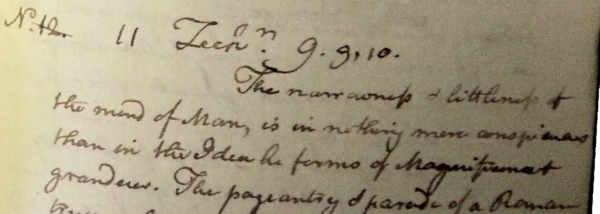 N. 12. 11 Zech.n 9. 9,10.
The narrowness & littleness of
the mind of Man, is in nothing more conspicuous
than in the Idea he forms of Magnificence &
grandeur. The pageantry & parade of a Roman